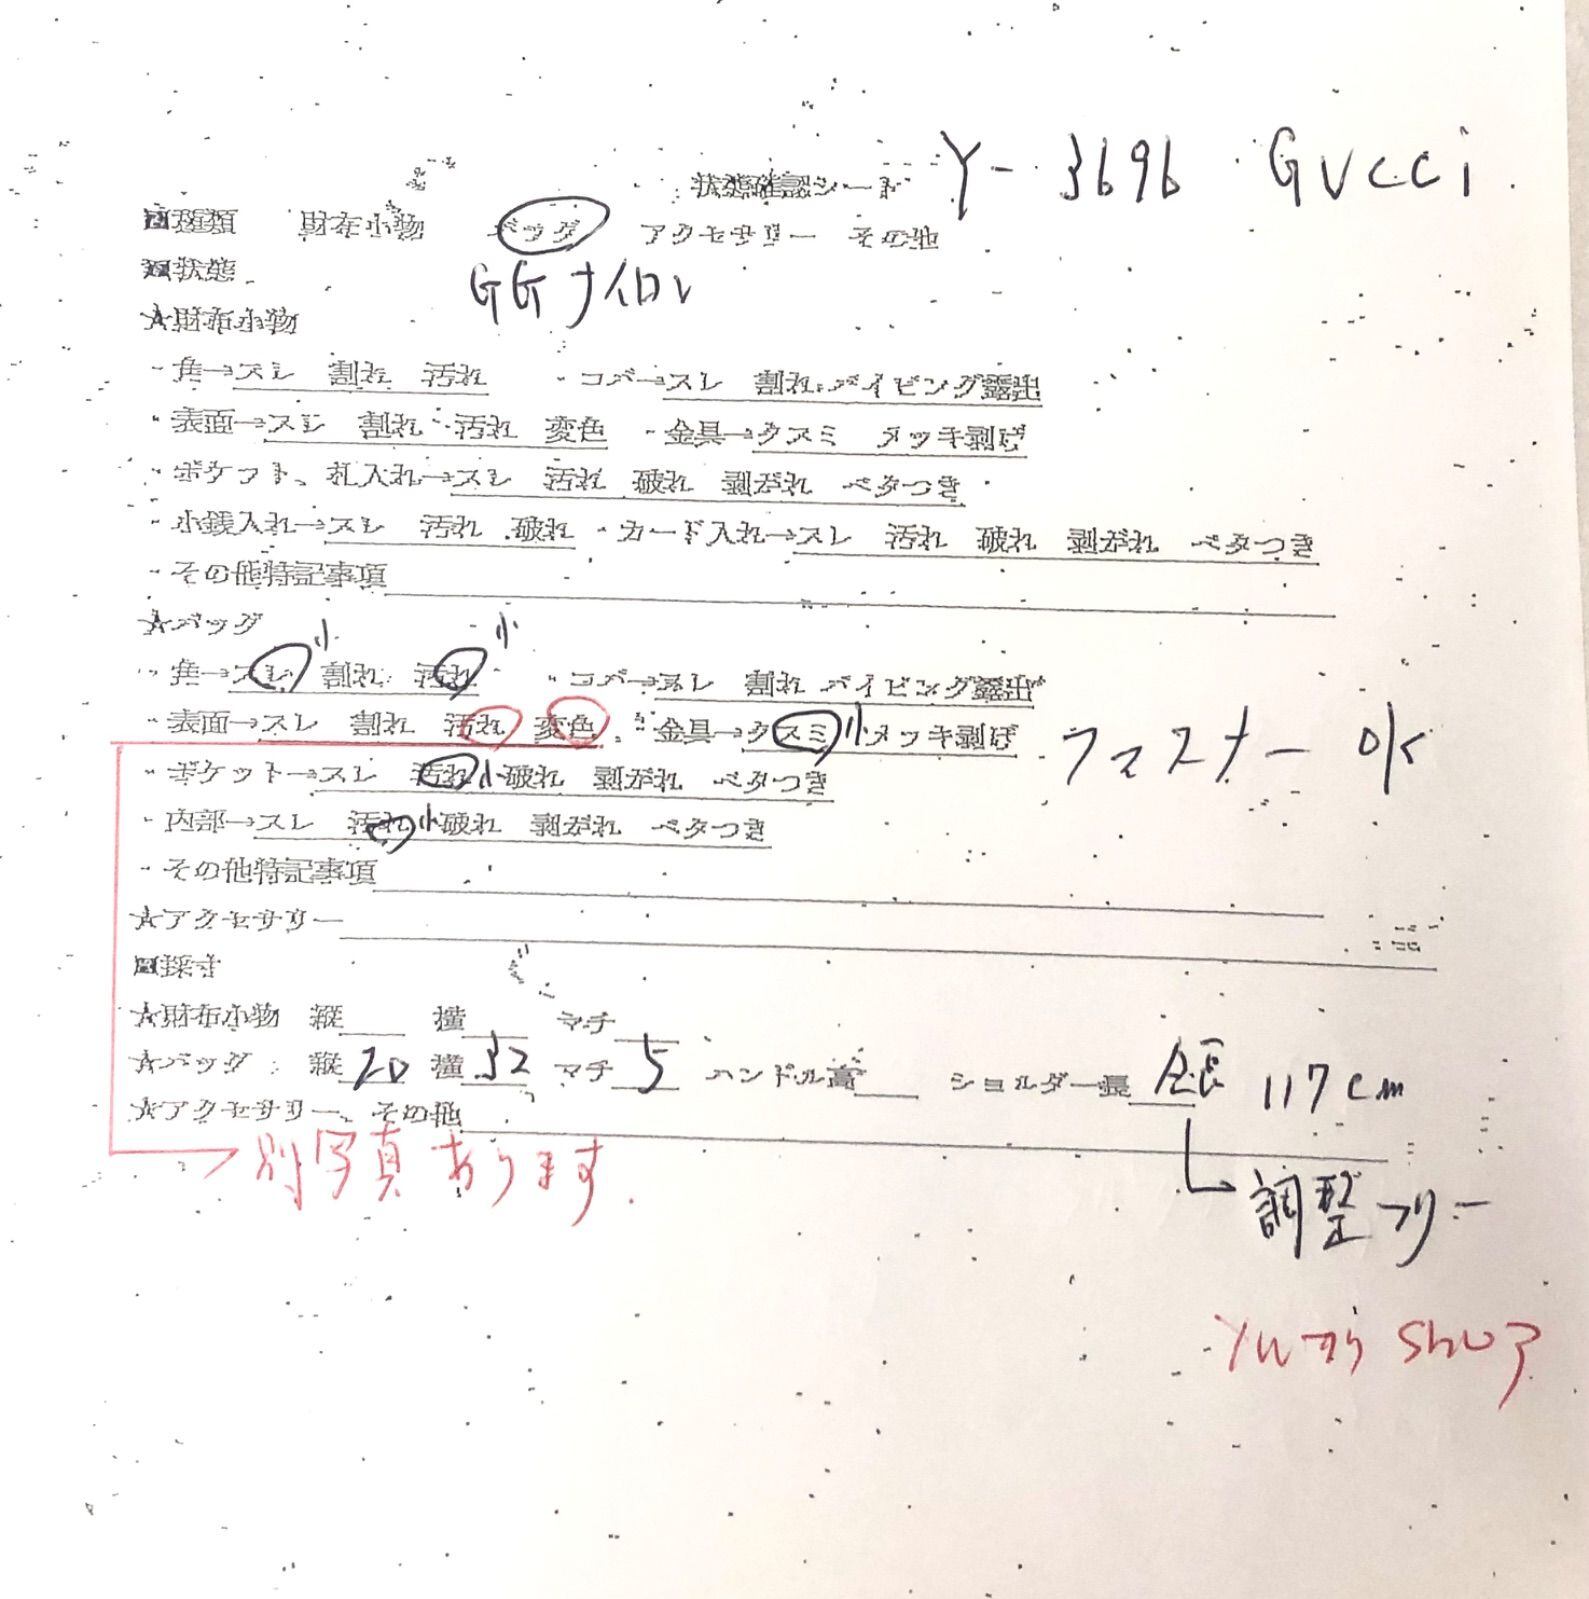 状態確認シート Y- 3696 GUCCi
種類 財布小物 バッグ アクセサリー その他
状態 GGナイロン
☆財布小物
・角→スレ 割れ 汚れ ・コバ→スレ 割れ パイピング露出
・表面→スレ 割れ 汚れ 変色 ・金具→クスミ メッキ剥げ
・ポケット、札入れ→スレ 汚れ 破れ 剥がれ ベタつき
・小銭入れ→スレ 汚れ 破れ ・カード入れ→スレ 汚れ 破れ 剥がれ ベタつき
・その他特記事項
☆バッグ
・角→スレ 小 割れ 汚れ 小 ・コバ→スレ 割れ パイピング露出
・表面→スレ 割れ 汚れ 変色 ・金具→クスミ 小 メッキ剥げ ファスナー OK
・ポケット→スレ 汚れ 小 破れ 剥がれ ベタつき
・内部→スレ 汚れ 小 破れ 剥がれ ベタつき
・その他特記事項
☆アクセサリー
採寸
☆財布小物 縦 横 マチ
☆バッグ 縦 20 横 32 マチ 5 ハンドル高 ショルダー長 全長 117cm
☆アクセサリー、その他
別写真あります. 調整フリー